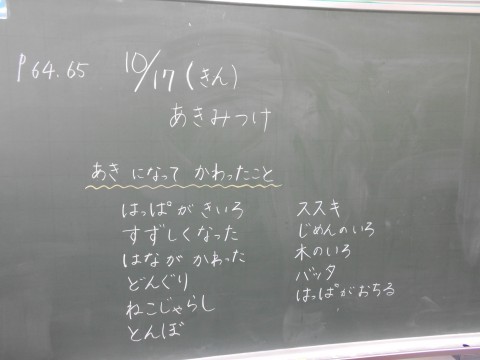 P64.65
10/17(きん)
あきみつけ
あきになって かわったこと
はっぱがきいろ
すずしくなった
はながかわった
どんぐり
ねこじゃらし
とんぼ
ススキ
じめんのいろ
木のいろ
バッタ
はっぱがおちる